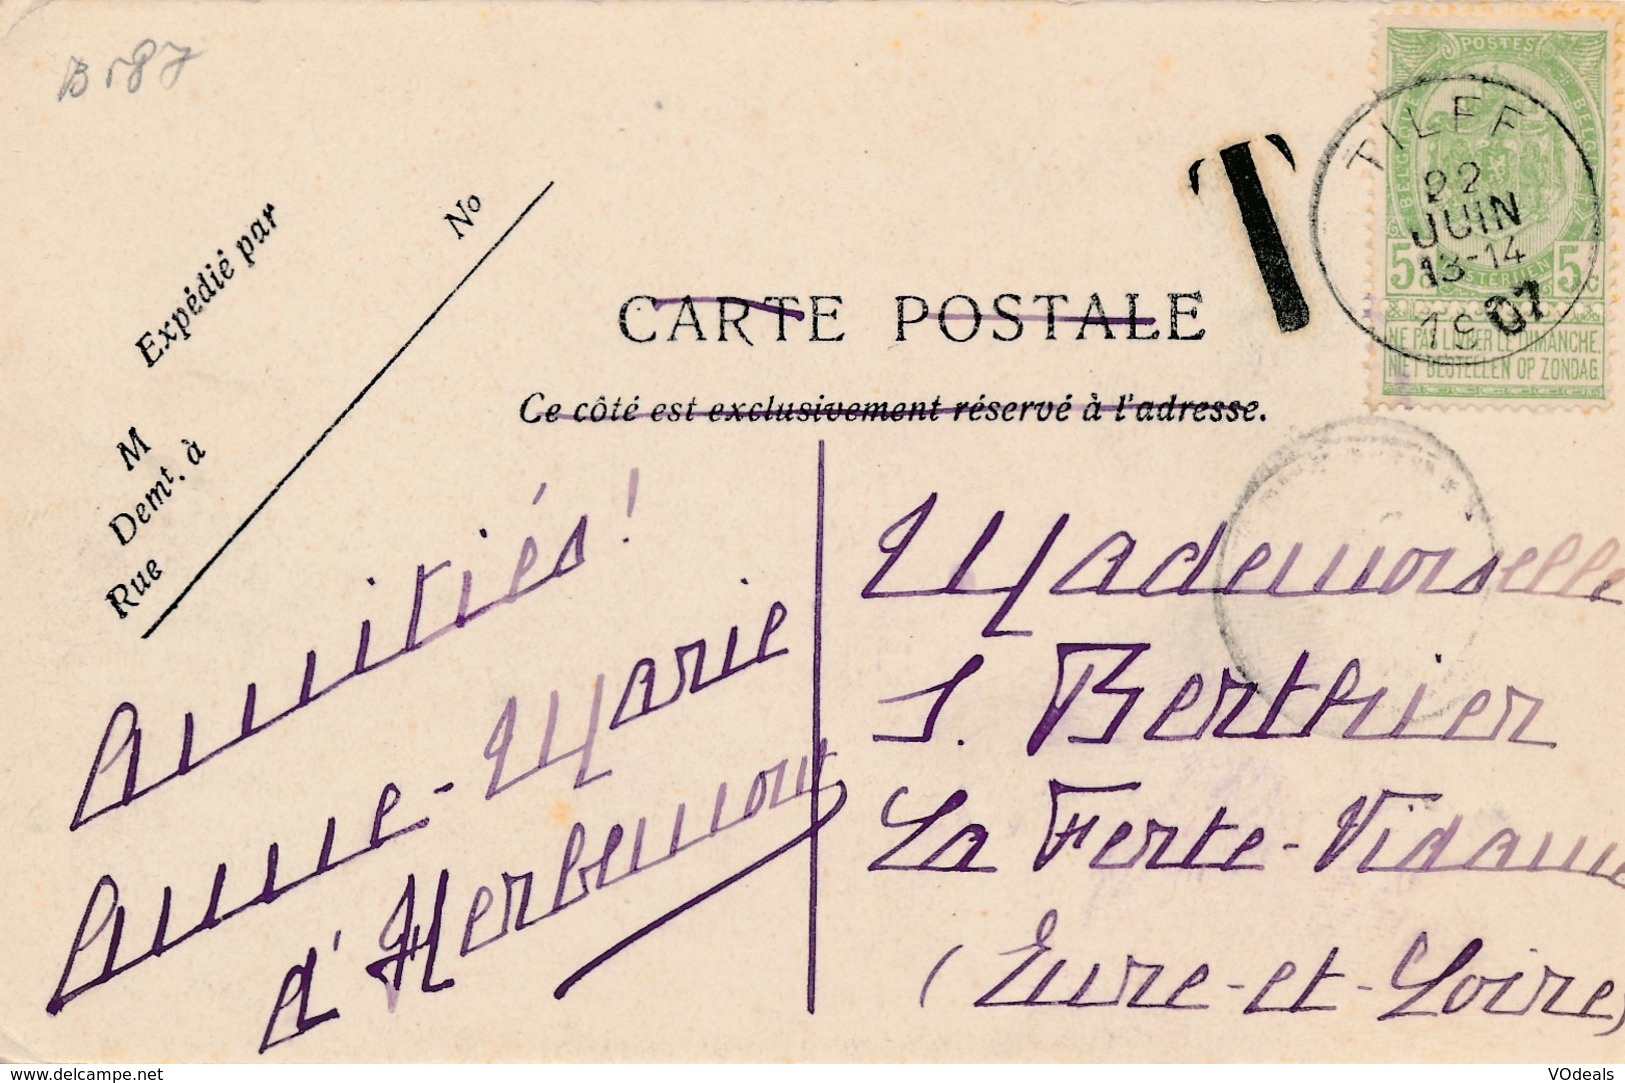 B 187
Expédié par
No
M
Demt. à
Rue
CARTE POSTALE
Ce côté est exclusivement réservé à l'adresse.
T
POSTES
BELGIQUE
BELGIË
5c
5c
NE PAS LIVRER LE DIMANCHE.
NIET BESTELLEN OP ZONDAG.
TILFF
22
JUIN
13-14
1907
Amitiés!
Anne-Marie
d'Herbemont
Mademoiselle
S. Berthier
La Ferte-Vidame
(Eure-et-Loire)
www.delcampe.net
VOdeals